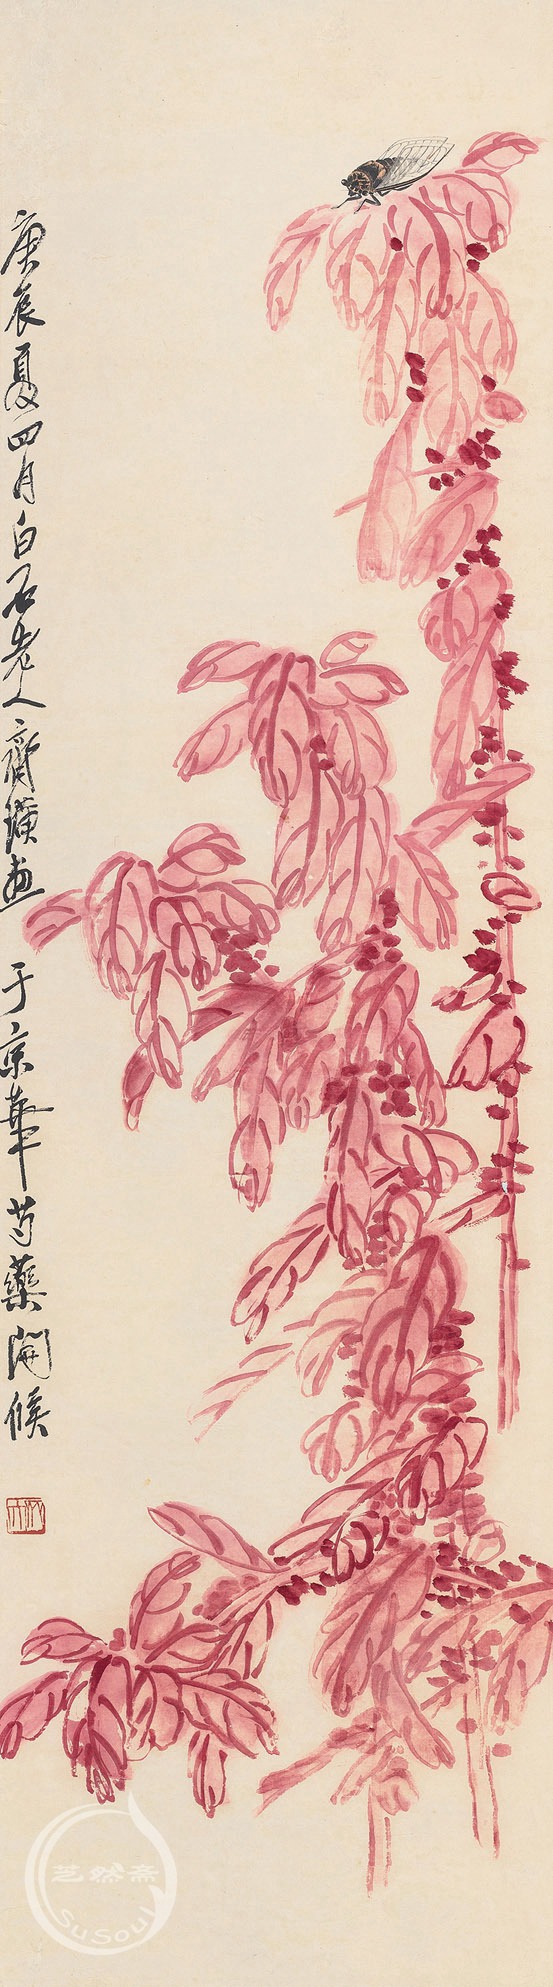 庚辰夏四月白石老人齊璜画于京華芍藥開候
芝然斋
SuSoul